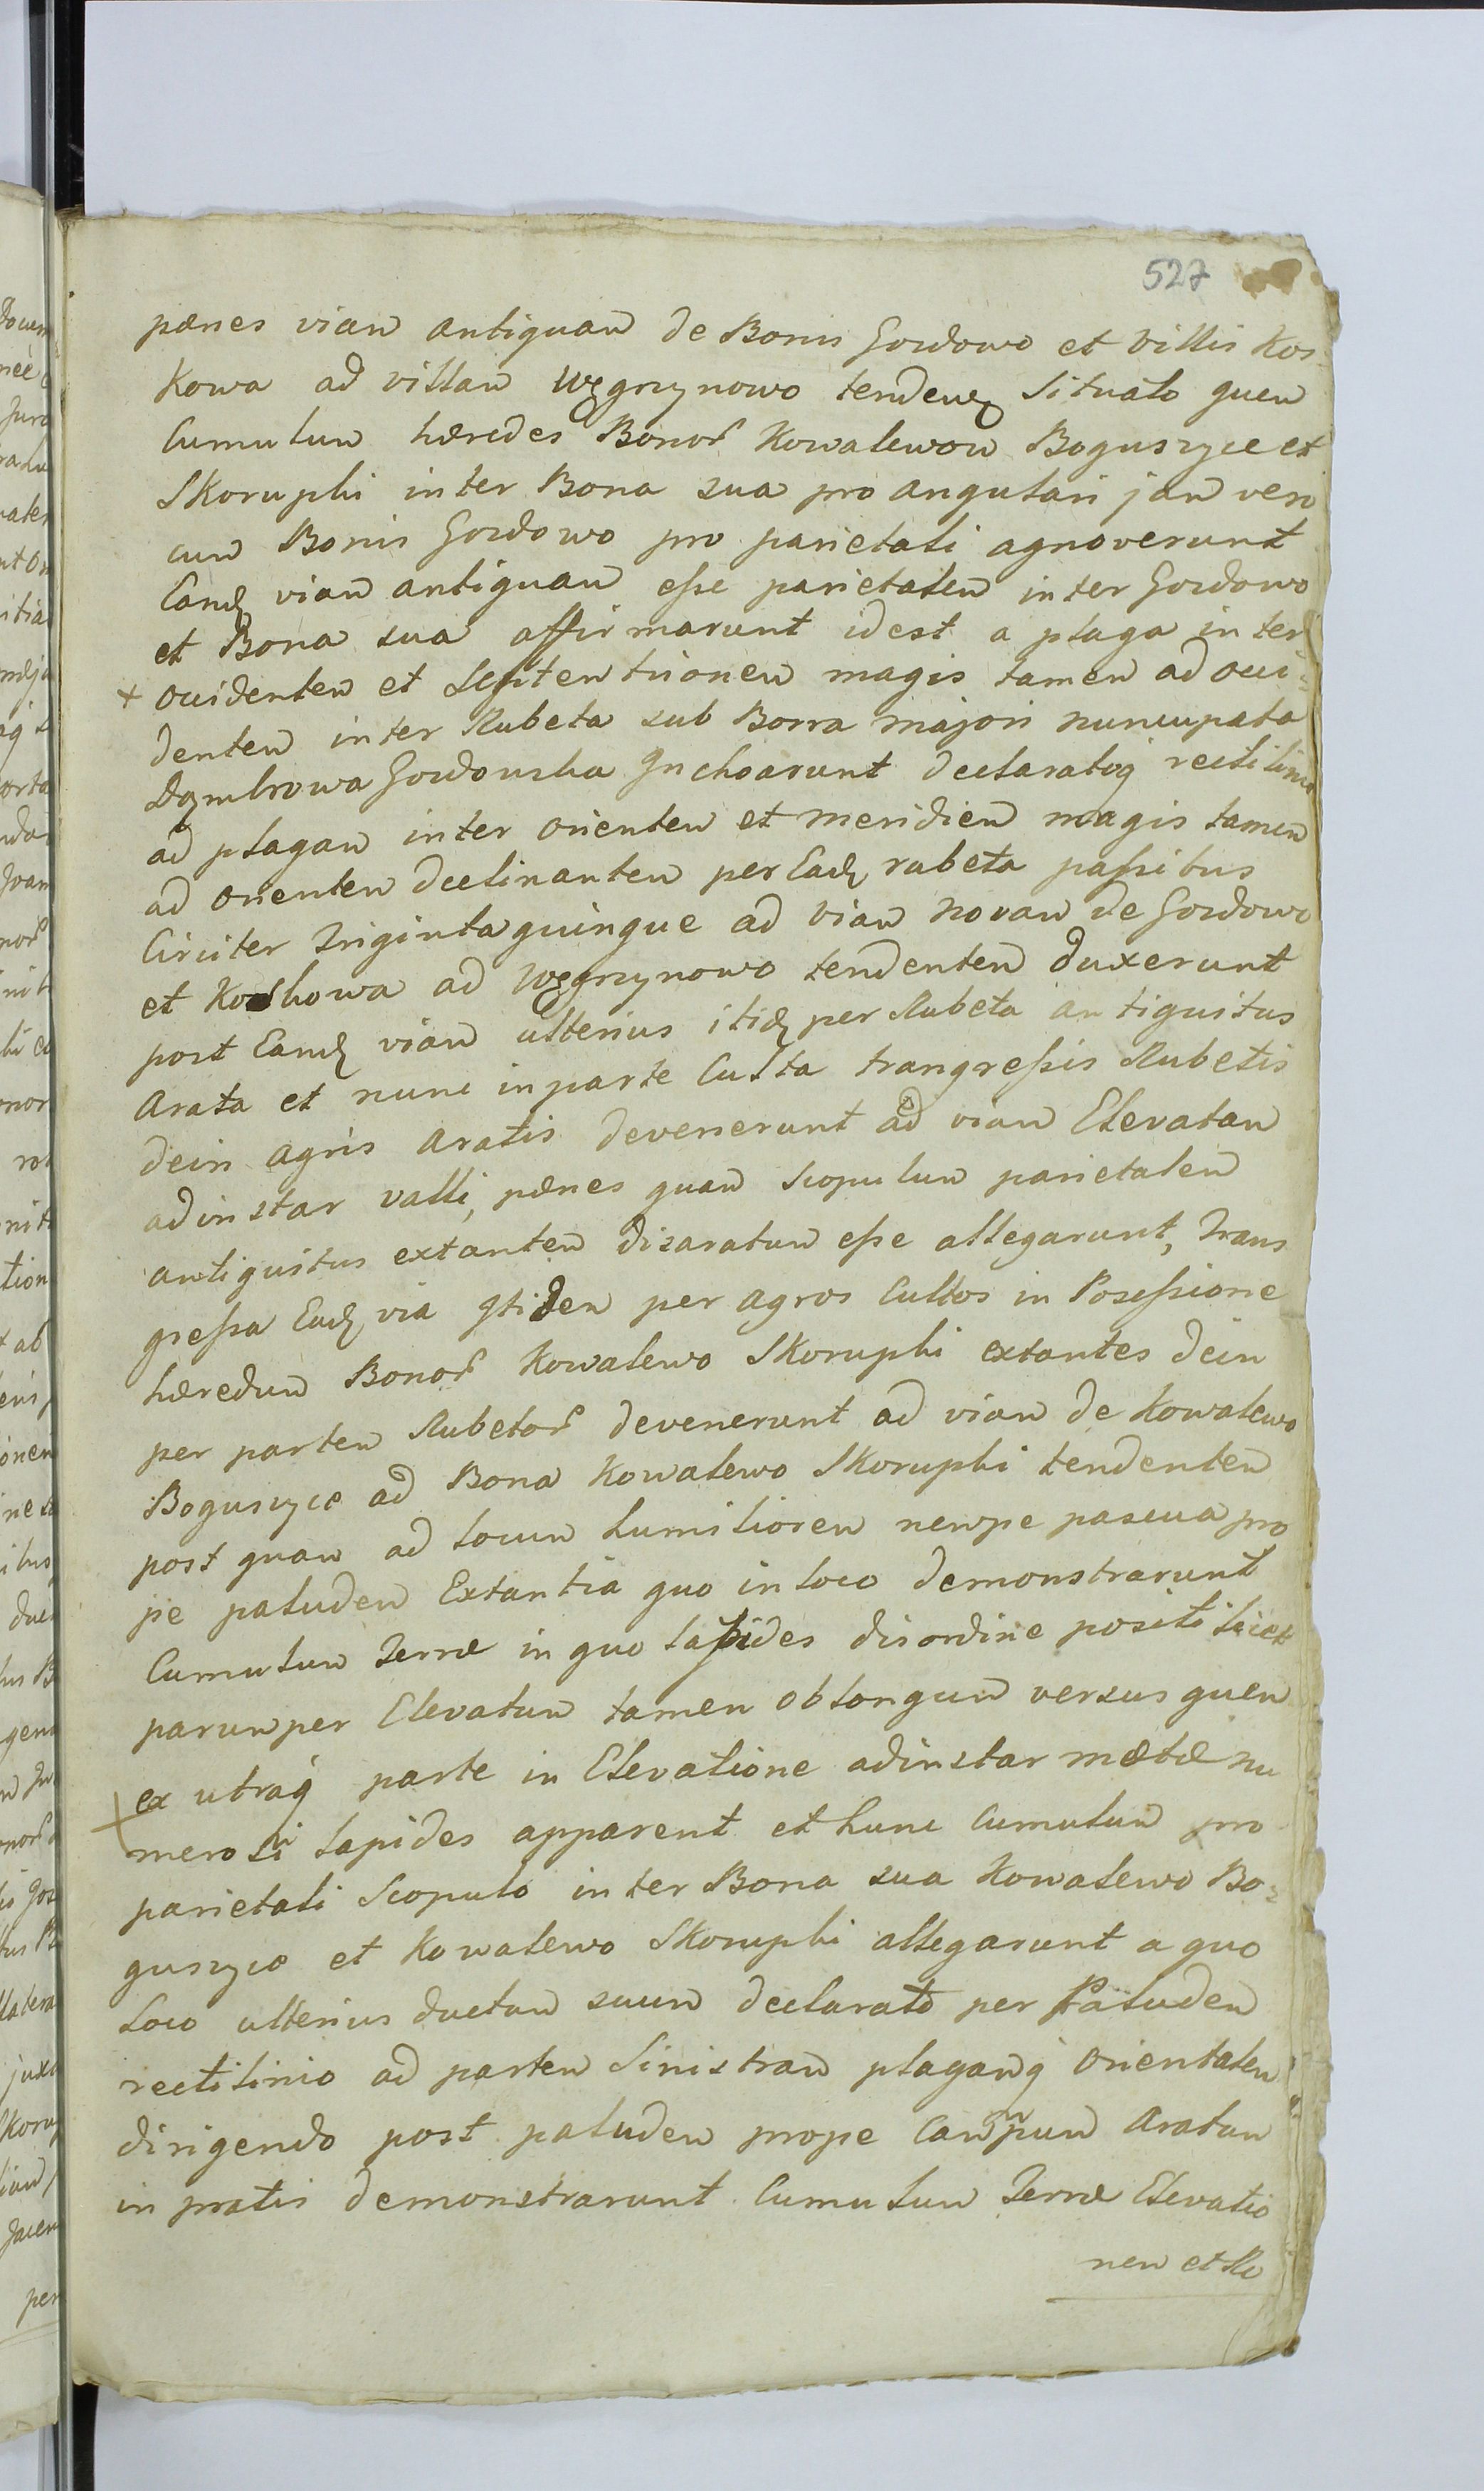 527
pænes viam antiquam de Bonis Gordowo et villis Kos
kowa ad villam Węgrzynowo tendenq situato quem
Cumulum hæredes Bonor Kowalewow Boguszyce et
Skorupki inter Bona sua pro angulari jam vero
cum Bonis Gordowo pro parietali agnoverunt
Eamq viam antiquam eße parietalem inter Gordowo
et Bona sua affirmarunt idest a plaga inter
+ occidentem et Septentrionem magis tamen ad occi=
dentem inter Rubeta sub Borra majori nuncupata
Dąmbrowa Gordowska Inchoarunt declaratoq rectilinio
ad plagam inter orientem et meridiem magis tamen
ad orientem declinantem per Eadq rubeta paßibus
Circiter Triginta quinque ad viam novam de Gordowo
et Koskowa ad Węgrzynowo tendentem duxerunt
post Eamq viam ulterius itiq per Rubeta antiquitus
Arata et nunc in parte Culta trangreßis Rubetis
dein agris aratis devenerunt ad viam Elevatam
adinstar valli, pænes quam scopulum parietalem
antiquitus extantem disaratum eße allegarunt, Trans
greßa Eadq via Itidem per agros Cultos in Poseßione
hæredum Bonor Kowalewo Skorupki extantes dein
per partem Rubetor devenerunt ad viam de Kowalewo
Boguszyce ad Bona Kowalewo Skorupki tendentem
post quam ad locum humiliorem nempe pascua pro
pe paludem Extantia quo in loco demonstrarunt
Cumulum Terræ in quo lapides disordine positi licet
parumper Elevatum tamen oblongum versus quem
ex utraq parte in Elevatione adinstar mætæ nu
merosi lapides apparent et hunc Cumulum pro
parietali Scopulo inter Bona sua Kowalewo Bo=
guszyce et Kowalewo Skorupki allegarunt a quo
Loco ulterius ductum suum declarato per Paludem
rectilinio ad partem Sinistram plagamq orientalem
dirigendo post paludem prope Campum Aratum
in pratis demonstrarunt Cumulum Terræ Elevatio
nem et Ru